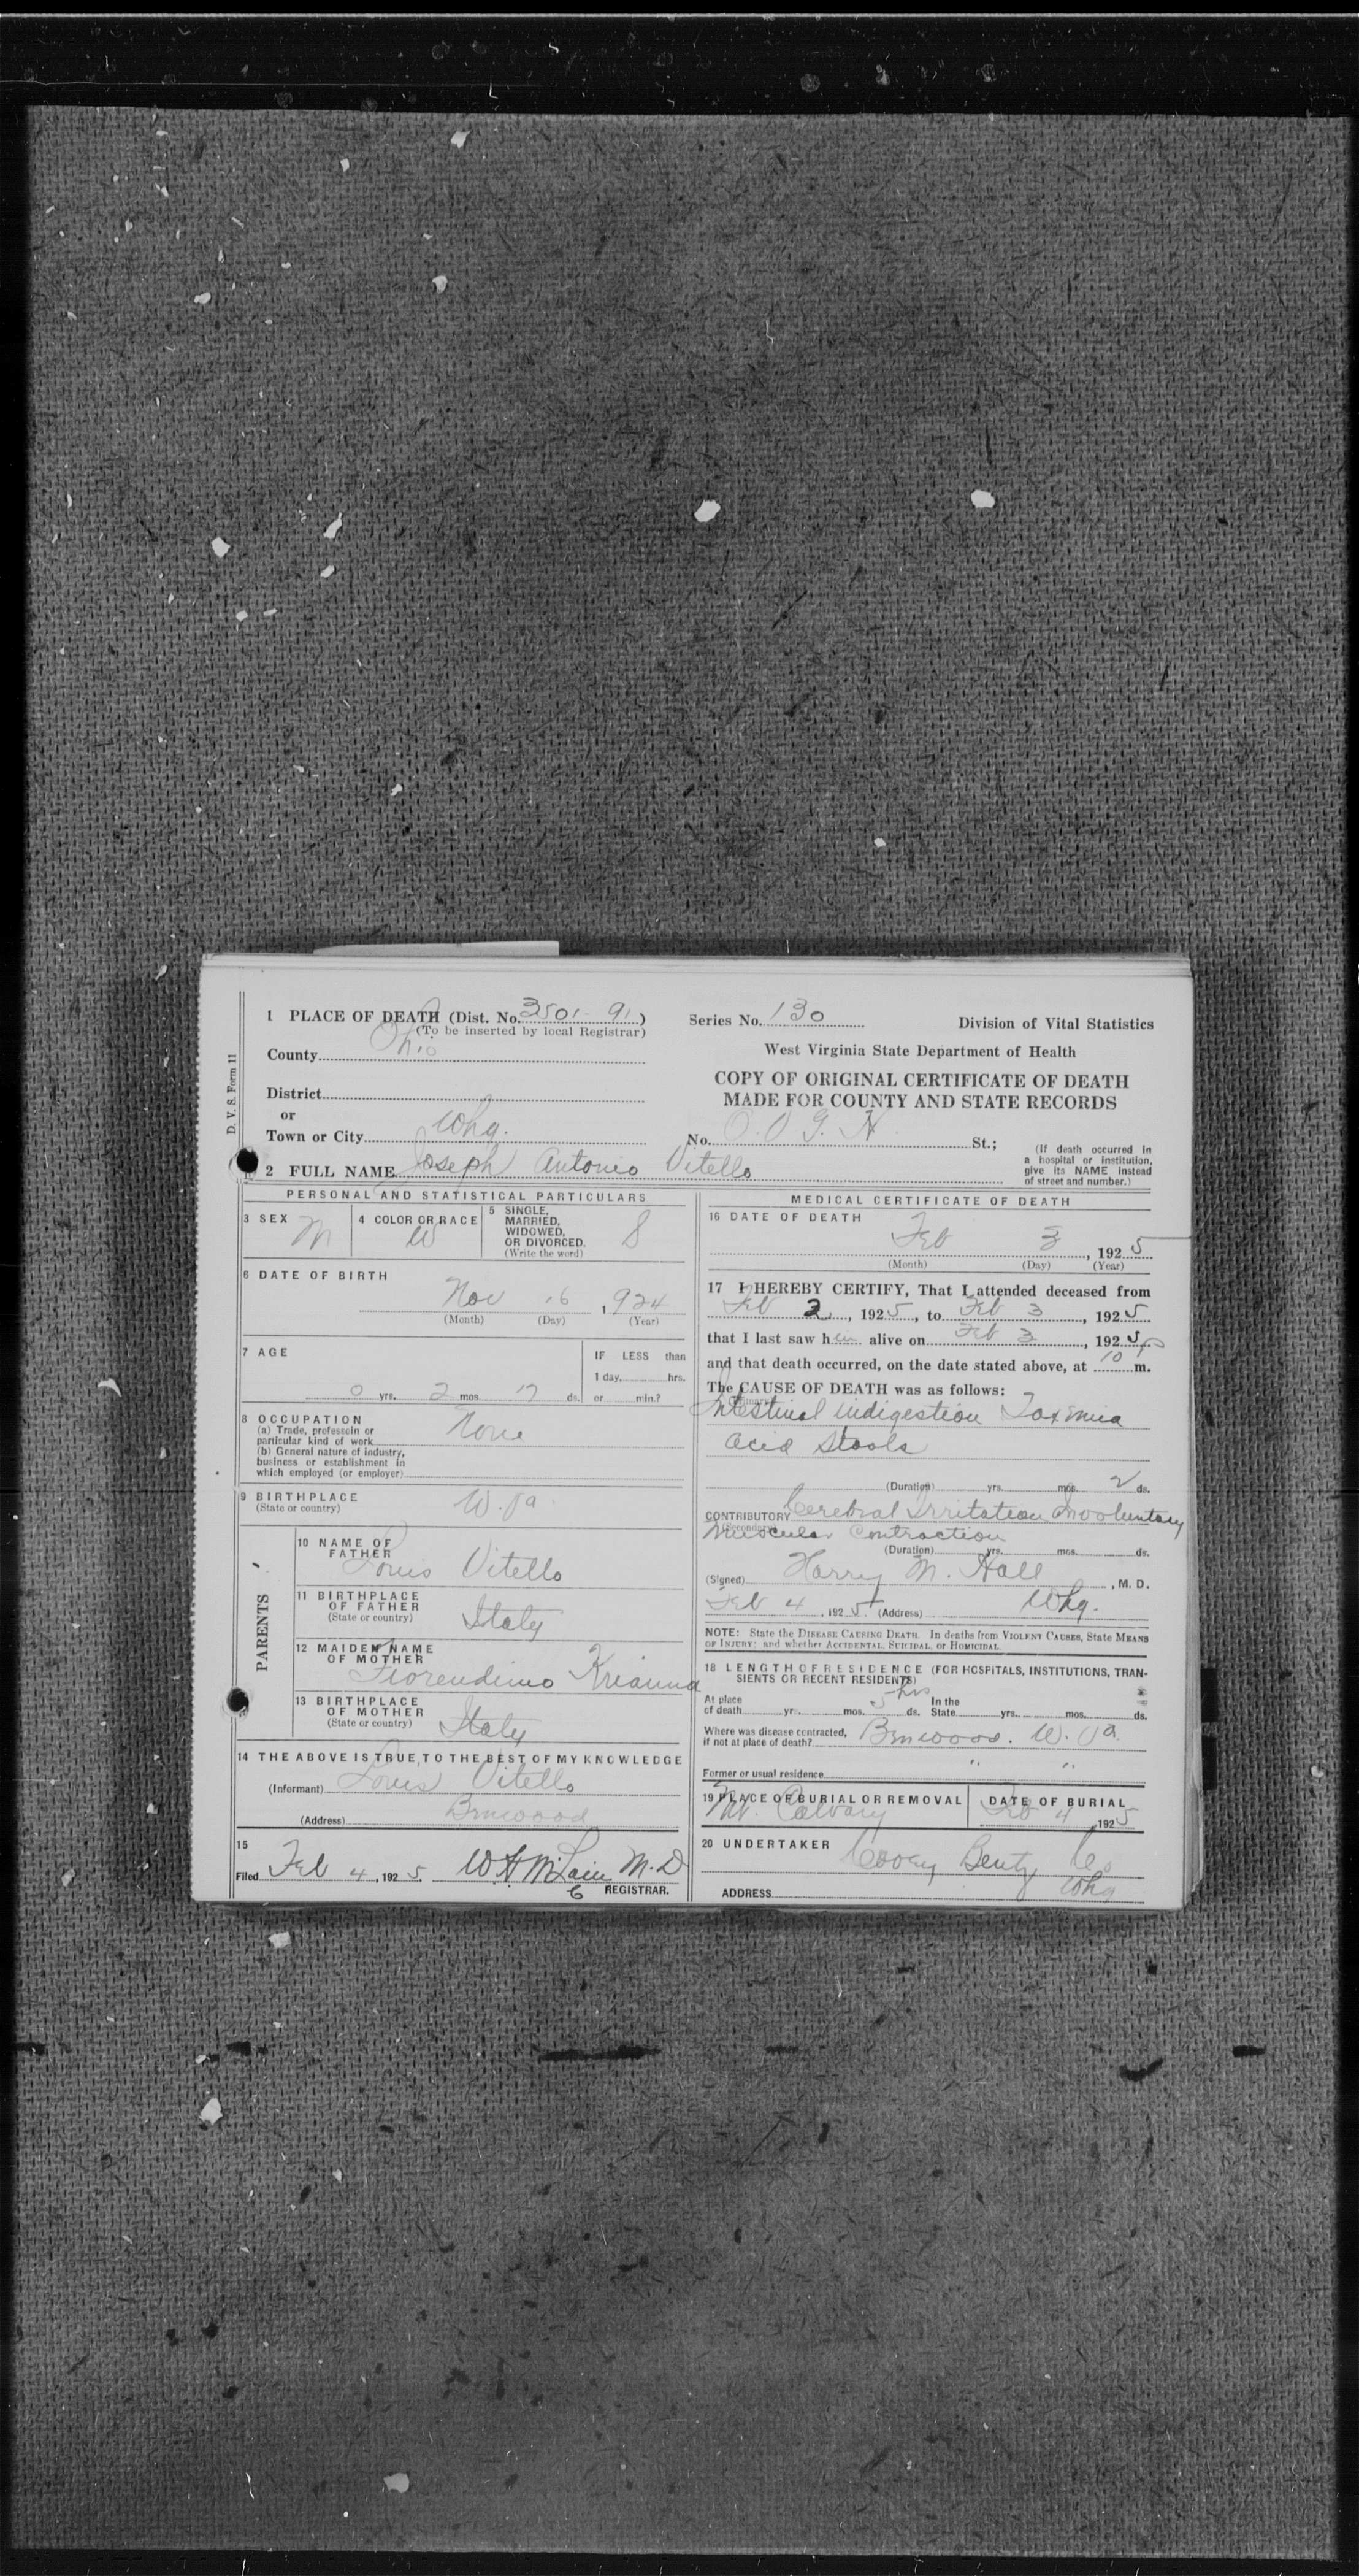 D. V. S. Form 11
1 PLACE OF DEATH (Dist. No. 3501- 91)
(To be inserted by local Registrar)
County Ohio
District
or
Town or City Whg.
2 FULL NAME Joseph Antonio Vitello
Series No. 130
Division of Vital Statistics
West Virginia State Department of Health
COPY OF ORIGINAL CERTIFICATE OF DEATH
MADE FOR COUNTY AND STATE RECORDS
No. O. V. G. H. St.;
(If death occurred in
a hospital or institution,
give its NAME instead
of street and number.)
PERSONAL AND STATISTICAL PARTICULARS
3 SEX M
4 COLOR OR RACE W
5 SINGLE,
MARRIED,
WIDOWED,
OR DIVORCED.
(Write the word) S
6 DATE OF BIRTH
Nov 16, 1924
(Month) (Day) (Year)
7 AGE
0 yrs. 2 mos 17 ds.
IF LESS than
1 day, hrs.
or min.?
8 OCCUPATION
(a) Trade, professoin or
particular kind of work None
(b) General nature of industry,
business or establishment in
which employed (or employer)
9 BIRTHPLACE
(State or country) W. Va.
PARENTS
10 NAME OF
FATHER Louis Vitello
11 BIRTHPLACE
OF FATHER
(State or country) Italy
12 MAIDEN NAME
OF MOTHER
Fiorendino Krianna
13 BIRTHPLACE
OF MOTHER
(State or country) Italy
14 THE ABOVE IS TRUE TO THE BEST OF MY KNOWLEDGE
(Informant) Louis Vitello
(Address) Benwood
15
Filed Feb 4, 1925 W H McLain M.D
6 REGISTRAR.
MEDICAL CERTIFICATE OF DEATH
16 DATE OF DEATH
Feb 3, 1925
(Month) (Day) (Year)
17 I HEREBY CERTIFY, That I attended deceased from
Feb 2, 1925, to Feb 3, 1925
that I last saw him alive on Feb 3, 1925
and that death occurred, on the date stated above, at 10 P m.
The CAUSE OF DEATH was as follows:
Intestinal indigestion Toxemia
acid stools
(Duration) yrs. mos. 2 ds.
CONTRIBUTORY Cerebral Irritation Involuntary
(Secondary)
Muscular Contraction
(Duration) yrs. mos. ds.
(Signed) Harry M. Hall, M. D.
Feb 4, 1925 (Address) Whg.
NOTE: State the DISEASE CAUSING DEATH. In deaths from VIOLENT CAUSES, State MEANS
OF INJURY; and whether ACCIDENTAL, SUICIDAL, or HOMICIDAL.
18 LENGTH OF RESIDENCE (FOR HOSPITALS, INSTITUTIONS, TRAN-
SIENTS OR RECENT RESIDENTS)
At place
of death yrs. mos. 5 hrs ds.
In the
State yrs. mos. ds.
Where was disease contracted,
if not at place of death? Benwood. W. Va.
Former or usual residence " "
19 PLACE OF BURIAL OR REMOVAL
Mt. Calvary
DATE OF BURIAL
Feb 4 1925
20 UNDERTAKER Cooey Bentz Co
ADDRESS Whg